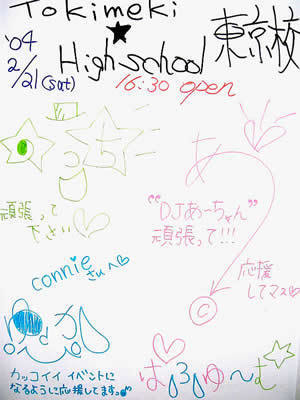 Tokimeki
★
High school 東京校
'04
2/21(sat)
16:30 open
頑張って
下さい♡
あ
"DJあ〜ちゃん"
頑張って!!!
応援
してマス♡
C
connie
さんへ♡
カッコイイ イベントに
なるように応援してます